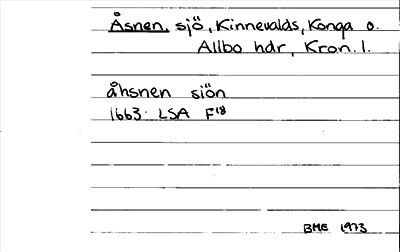 Åsnen, sjö, Kinnevalds, Konga o.
Allbo hdr, Kron. l.
åhsnen siön
1663 LSA F18
BME 1973